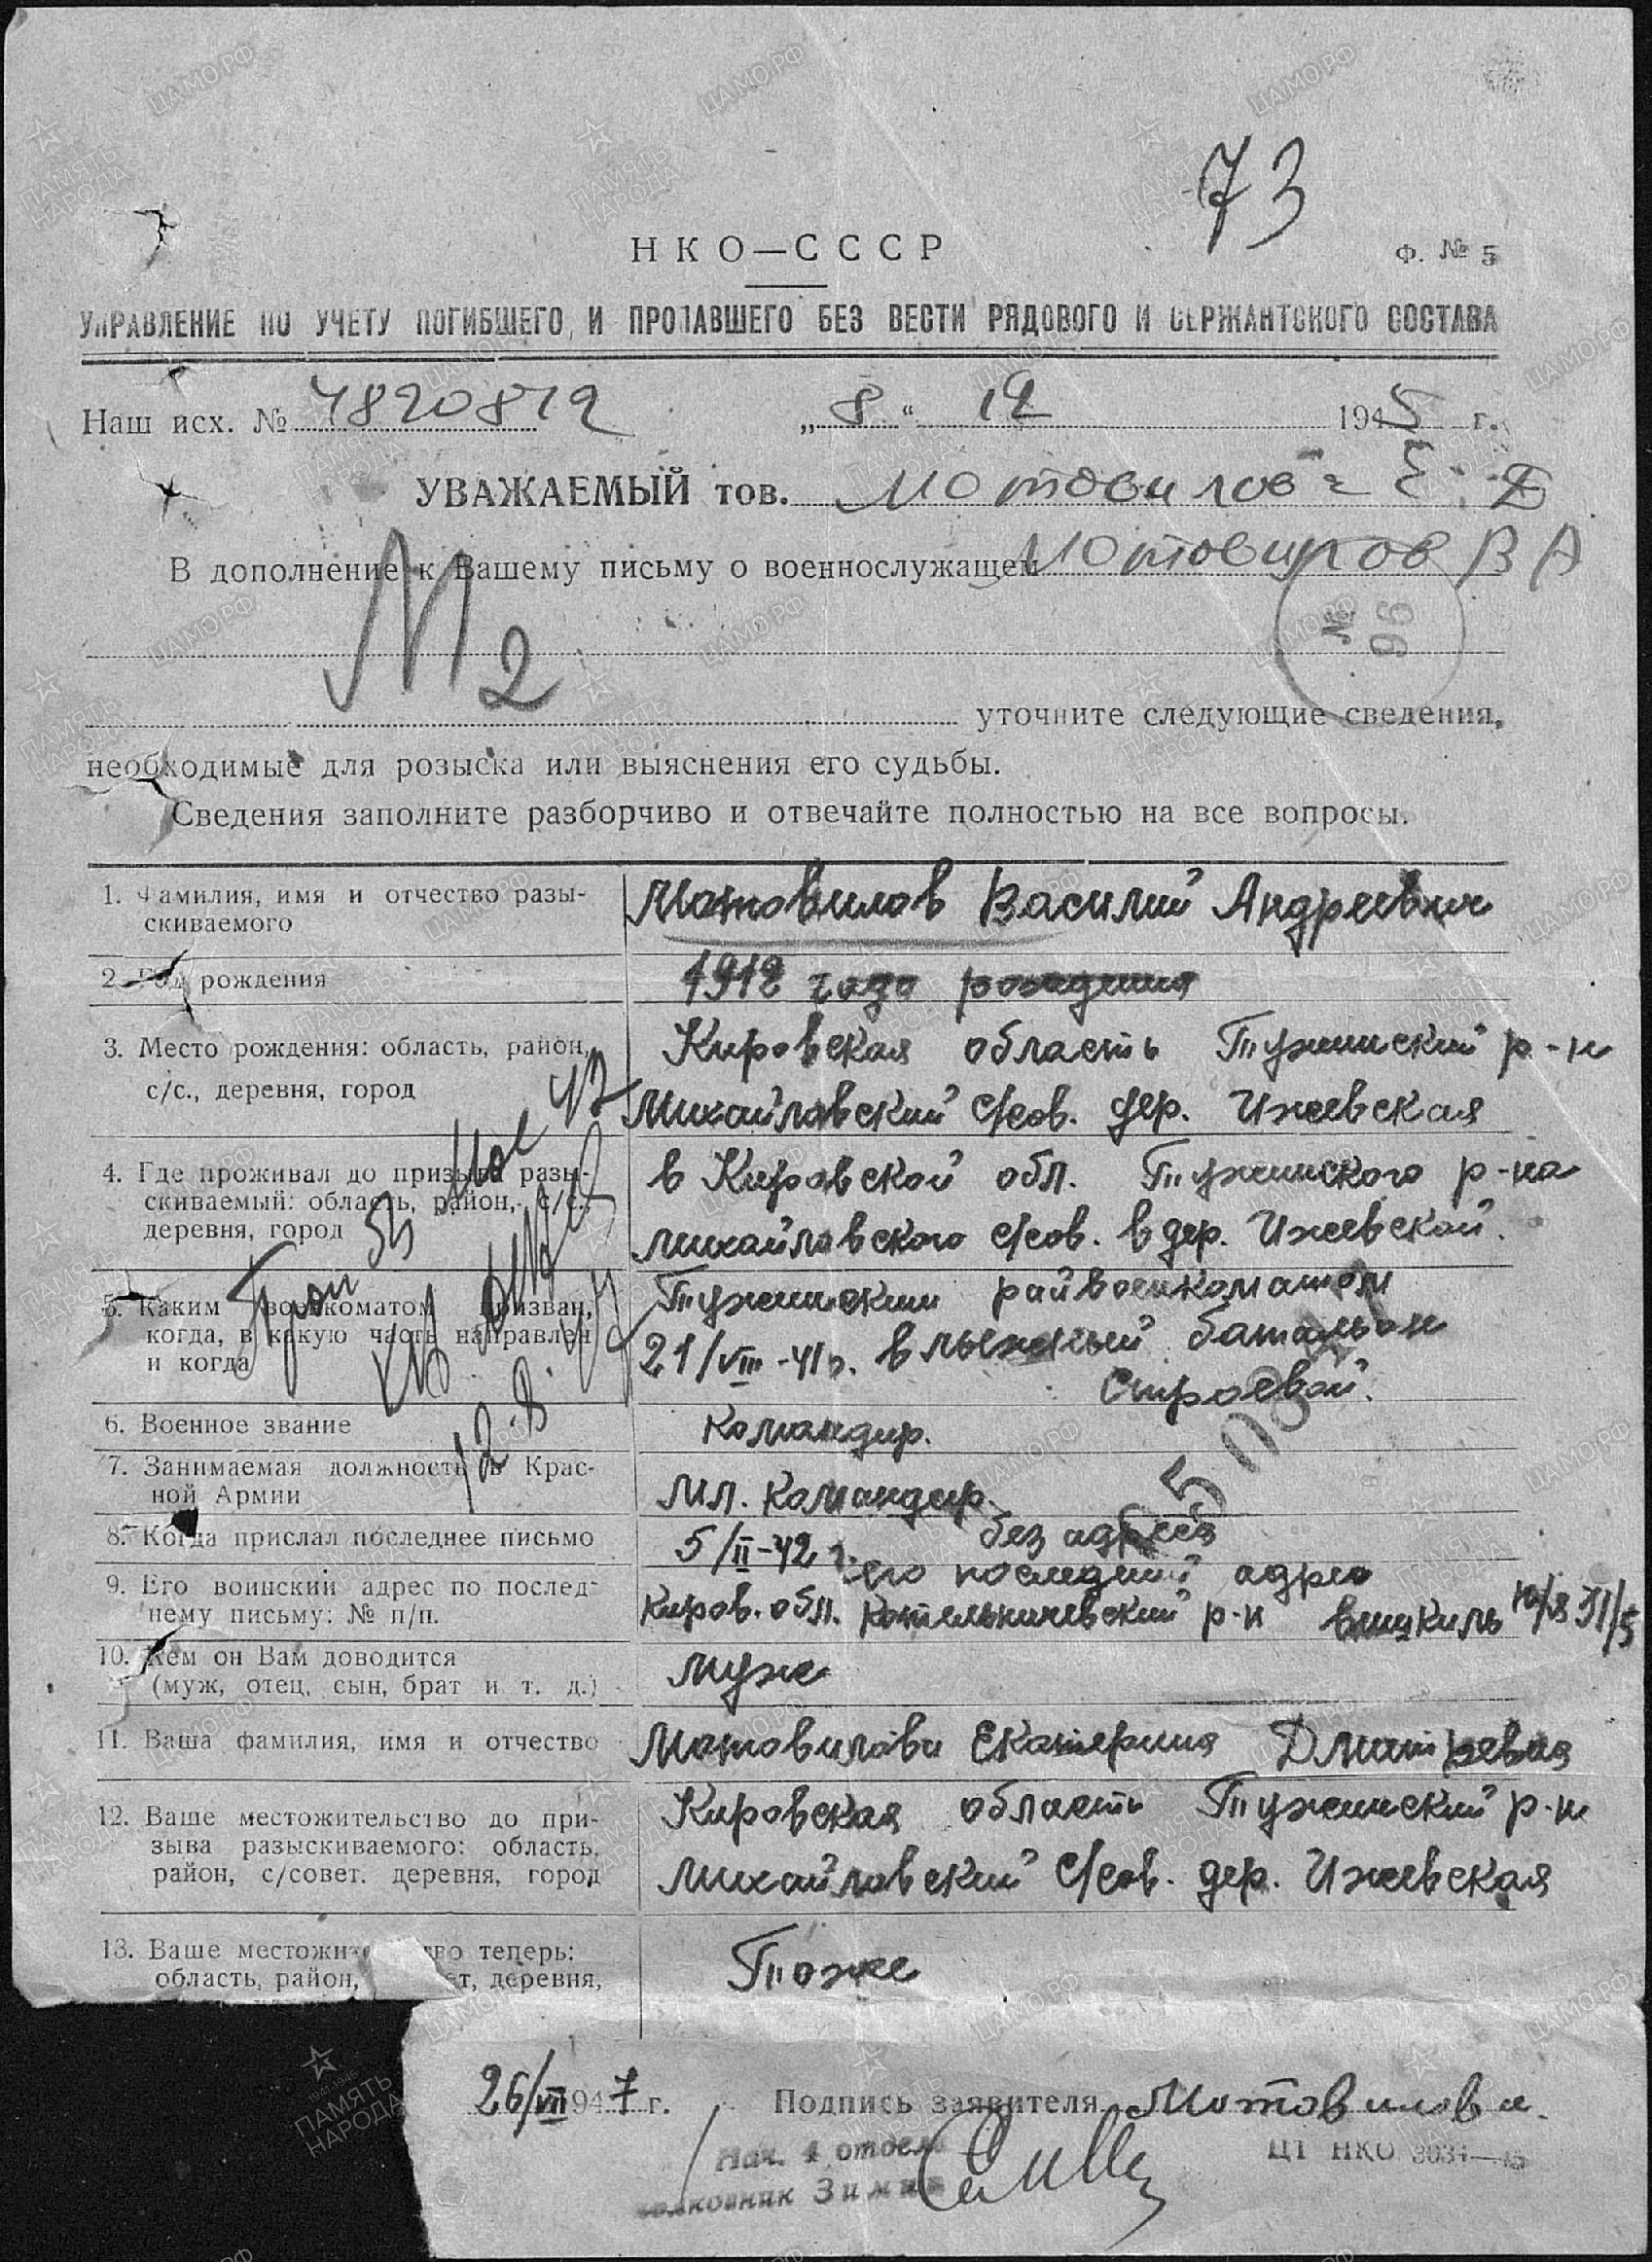 73
НКО—СССР
Ф. № 5
УПРАВЛЕНИЕ ПО УЧЕТУ ПОГИБШЕГО И ПРОПАВШЕГО БЕЗ ВЕСТИ РЯДОВОГО И СЕРЖАНТСКОГО СОСТАВА
Наш исх. № 4820872 „8“ 12 1945 г.
УВАЖАЕМЫЙ тов. Мотовилова Е. Д
В дополнение к Вашему письму о военнослужащем Мотовилов В А
№ 96
2
уточните следующие сведения,
необходимые для розыска или выяснения его судьбы.
Сведения заполните разборчиво и отвечайте полностью на все вопросы.
1. Фамилия, имя и отчество разы-
скиваемого
Мотовилов Василий Андреевич
2. Год рождения
1912 года рождения
3. Место рождения: область, район,
с/с., деревня, город
Кировская область Тужинский р-н
Михайловский с/сов. дер. Ижевская
4. Где проживал до призыва разы-
скиваемый: область, район, с/с.,
деревня, город
в Кировской обл. Тужинского р-на
михайловского с/сов. в дер. Ижевской.
5. Каким военкоматом призван,
когда, в какую часть направлен
и когда
Тужинским райвоенкоматом
21/VIII-41г. в лыжный батальон
Строевой.
6. Военное звание
командир.
7. Занимаемая должность в Крас-
ной Армии
мл. командир.
8. Когда прислал последнее письмо
5/II-42 г. без адреса
9. Его воинский адрес по послед-
нему письму: № п/п.
его последний адрес
Киров. обл. Котельничевский р-н Вишкиль п/я 31/5
10. Кем он Вам доводится
(муж, отец, сын, брат и т. д.)
муж
11. Ваша фамилия, имя и отчество
Мотовилова Екатерина Дмитревна
12. Ваше местожительство до при-
зыва разыскиваемого: область,
район, с/совет. деревня, город
Кировская область Тужинский р-н
михайловский с/сов. дер. Ижевская
13. Ваше местожительство теперь:
область, район, деревня,
Тоже
26/VII 1947 г. Подпись заявителя Мотовилова.
Нач. 4 отдела
полковник Зимин
ЦТ НКО 3034—45
ЦАМО.РФ
ПАМЯТЬ НАРОДА